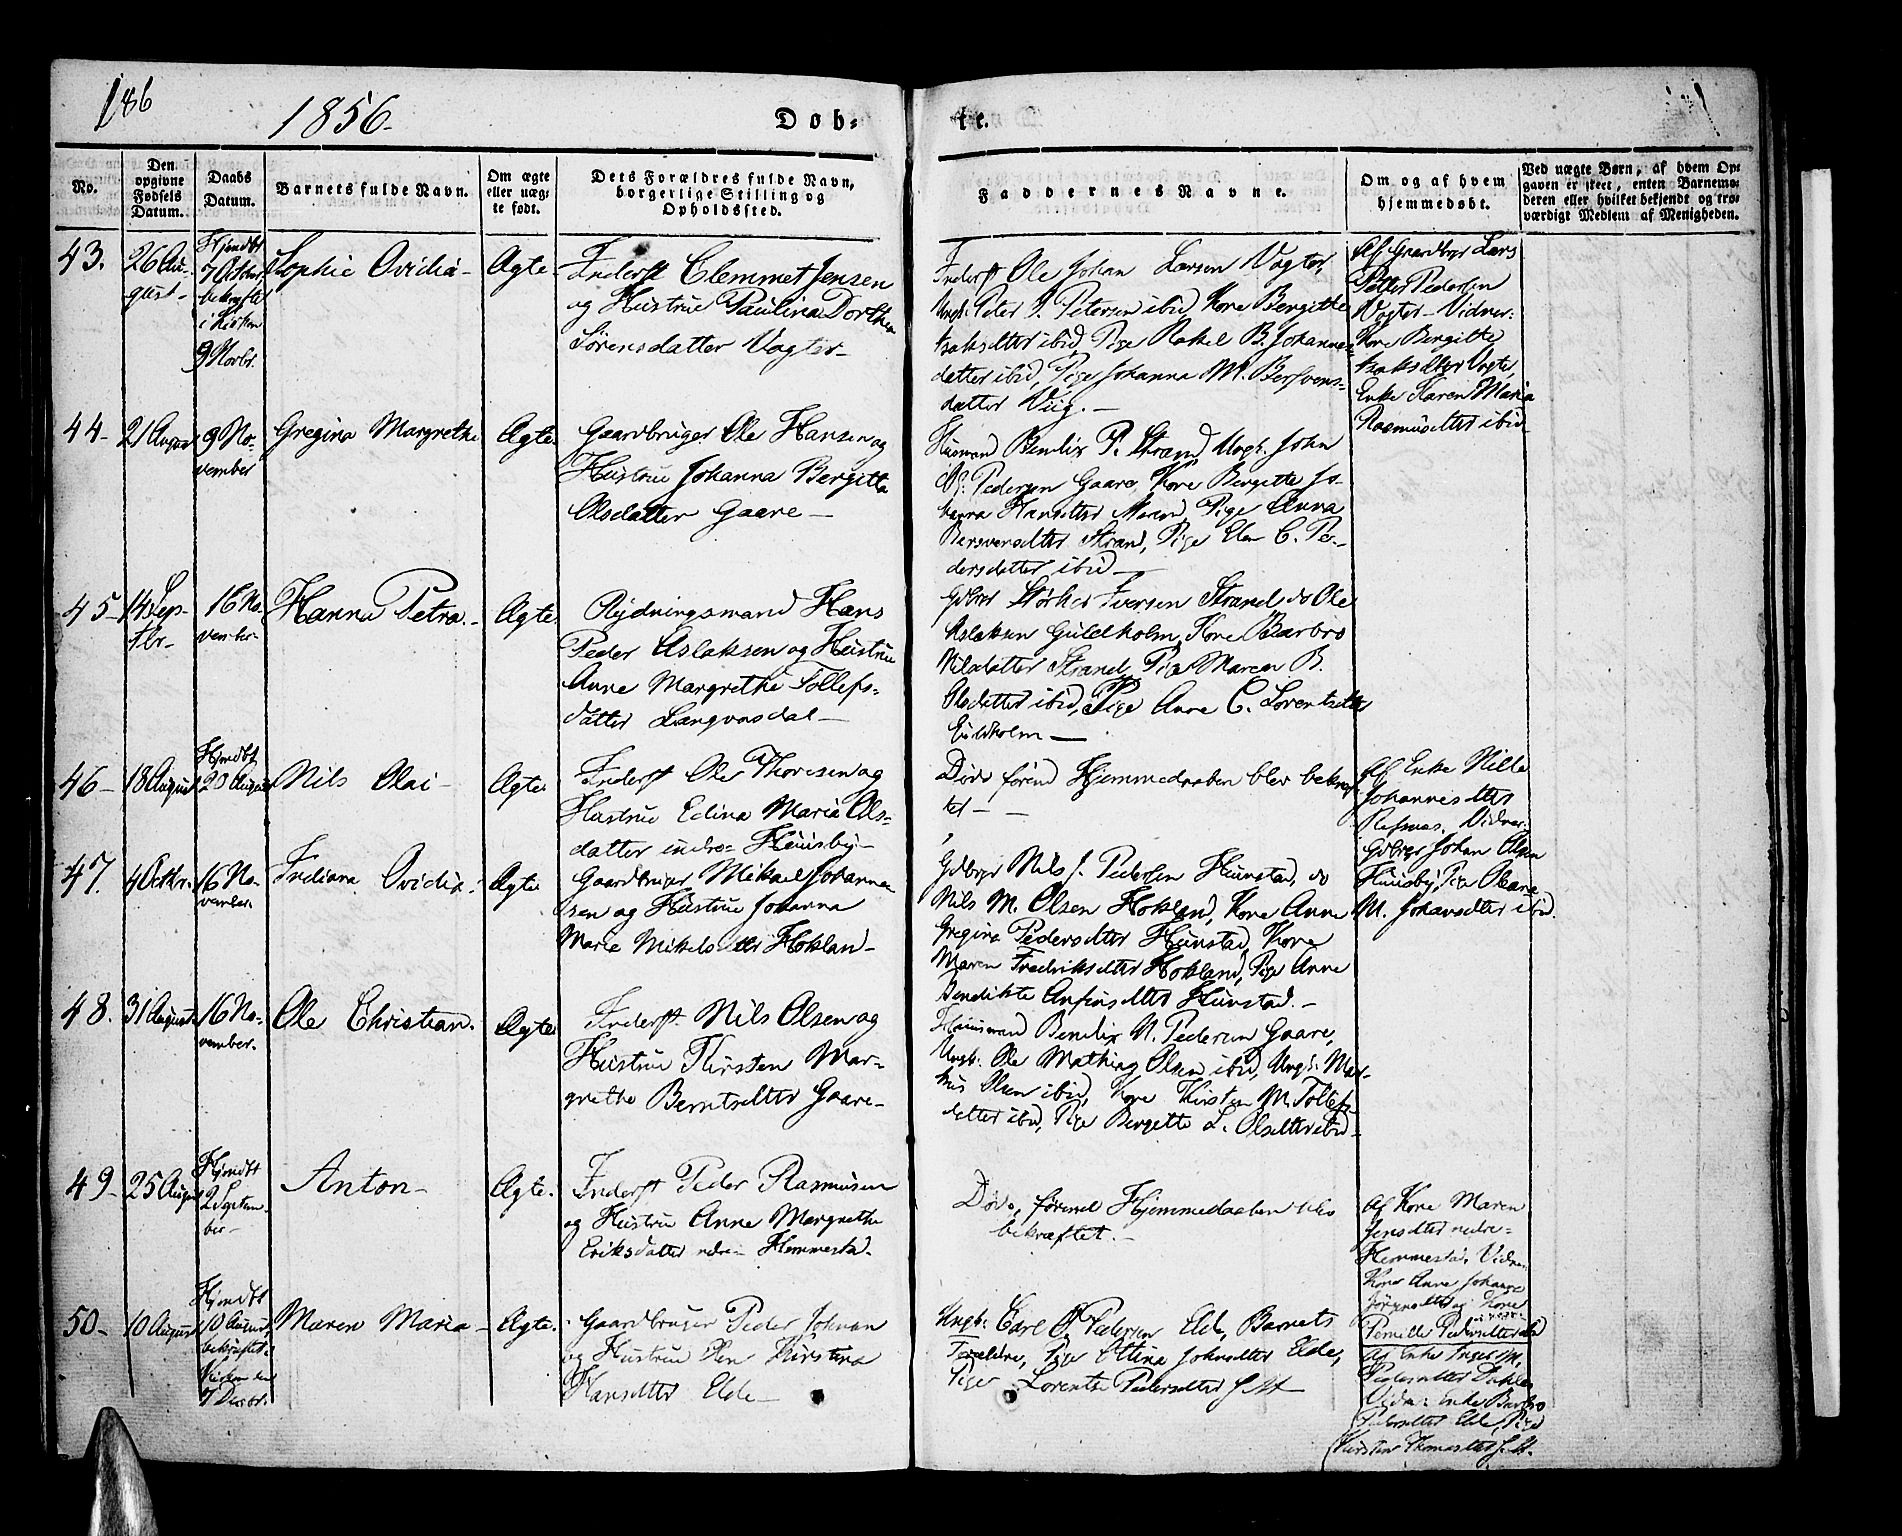 186
1856.
Døb-
te.
No.
Den opgivne Fødsels Datum.
Daabs Datum.
Barnets fulde Navn.
Om ægte eller uægte født.
Dets Forældres fulde Navn, borgerlige Stilling og Opholdssted.
Faddernes Navne.
Om og af hvem hjemmedøbt.
Ved uægte Børn, af hvem Opgaven er skeet, enten Barnemoderen eller hvilket bekjendt og troværdigt Medlem af Menigheden.
43.
26 Au-
gust-
Hjmdbt
7 Octbr
bekræftet
i Kirken
9 Novbr.
Sophie Ovidia-
Ægte
Inderst Clemmet Jensen
og Hustrue Paulina Dorthea
Sørensdatter Vogter-
Inderst Ole Johan Larsen Vogter,
Ungk. Peter J. Petersen ibid, Kone Bergitte
Isaksdtter ibid, Pige Rakel B. Johannes-
datter ibid, Pige Johanna M. Bersvens-
datter Viig.-
Af Gaardbrgr Lars
Petter Pedersen
Vogter- Vidner:
Kone Bergitte
Isaksdtter Vogter,
Enke Karen Maria
Rasmusdtter ibid
44-
21 August
9 No-
vember
Gregina Margrethe
Ægte.
Gaardbruger Ole Hansen og
Hustrue Johanna Bergitta
Olsdatter Gaare-
Husmand Bendix P. Strand, Ungk. John
Pedersen Gaare, Kone Bergitte Jo-
hanna Hansdtter Pige Anna
Bersvensdtter Strand, Pige Elen C. Pe-
dersdatter ibid-
45-
14 Sep-
tbr-
16 No-
vember
Hanna Petra.-
Ægte.
Rydningsmand Hans
Peder Aslaksen og Hustrue
Anne Margrethe Tollefs-
datter Langvasdal-
Gdbrgr Størker Iversen Strand, do Ole
Aslaksen Guldholm, Kone Barbro
Nilsdatter Strand, Pige Maren B.
Olsdatter ibid, Pige Anne C. Lorentsdtter
Guldholm-
46-
18 August
Hjmdbt
20 August
Nils Olai-
Ægte.
Inderst Ole Thoresen og
Hustrue Edina Maria Ols-
datter indre- Huusby-
Døde førend Hjemmedaaben blev bekræf-
tet-
Af Enke Nille
Johannesdtter
Refsnes. Vidner:
Gdbrgr Johan Olsen
Huusby, Pige Oleana
M. Johansdtter ibid.
47.
4 Octbr.
16 No-
vember.
Indiana Ovidia.
Ægte
Gaardbruger Mikael Johanne-
sen og Hustrue Johanna
Marie Mikelsdtter Hokland-
Gdbrgr Nils J. Pedersen Hunstad, do
Nils M. Olsen Hokland, Kone Anne
Gregina Pedersdtter Hunstad, Kone
Maren Fredriksdtter Hokland, Pige Anne
Bendikte Anfinsdtter Hunstad.-
48.
31 August.
16 No-
vember.
Ole Christian.
Ægte
Inderst Nils Olsen og
Hustrue Kirsten Mar-
grethe Berntsdtter Gaare-
Huusmand Bendix N. Pedersen Gaare,
Ungk. Ole Mathias Olsen ibid, Ungk. Mar-
kus Olsen ibid, Kone Kirsten M. Tollefs-
datter ibid, Pige Bergitte L. Olsdtter ibid-
49-
25 August
Hjmdbt
2 Septem-
ber-
Anton-
Ægte.
Inderst Peder Rasmusen
og Hustrue Anne Margrethe
Eriksdatter nedre- Hemmestad.
Døde, førend Hjemmedaaben blev
bekræftet.-
Af Kone Maren
Jensdtter nedre-
Hemmestad, Vidner
Kone Anne Johanna
Jørgensdtter og Kone
Pernille Pedersdtter ibid
50-
10 August
Hjmdbt
10 August,
bekræftet i
Kirken den
7 Decbr.
Maren Maria-
Ægte.
Gaardbruger Peder Johnsen
og Hustrue Elen Kirstina
Hansdtter Elde-
Ungk: Carl O. Pedersen Elde, Barnets
Forældre, Pige Ottina Johnsdtter Elde,
Pige Lorentse Pedersdtter
Af Enke Inger M.
Pedersdtter Dahle
Vidner: Enke Barbro
Pedersdtter Elde, Pige
Kirsten Thomasdtter